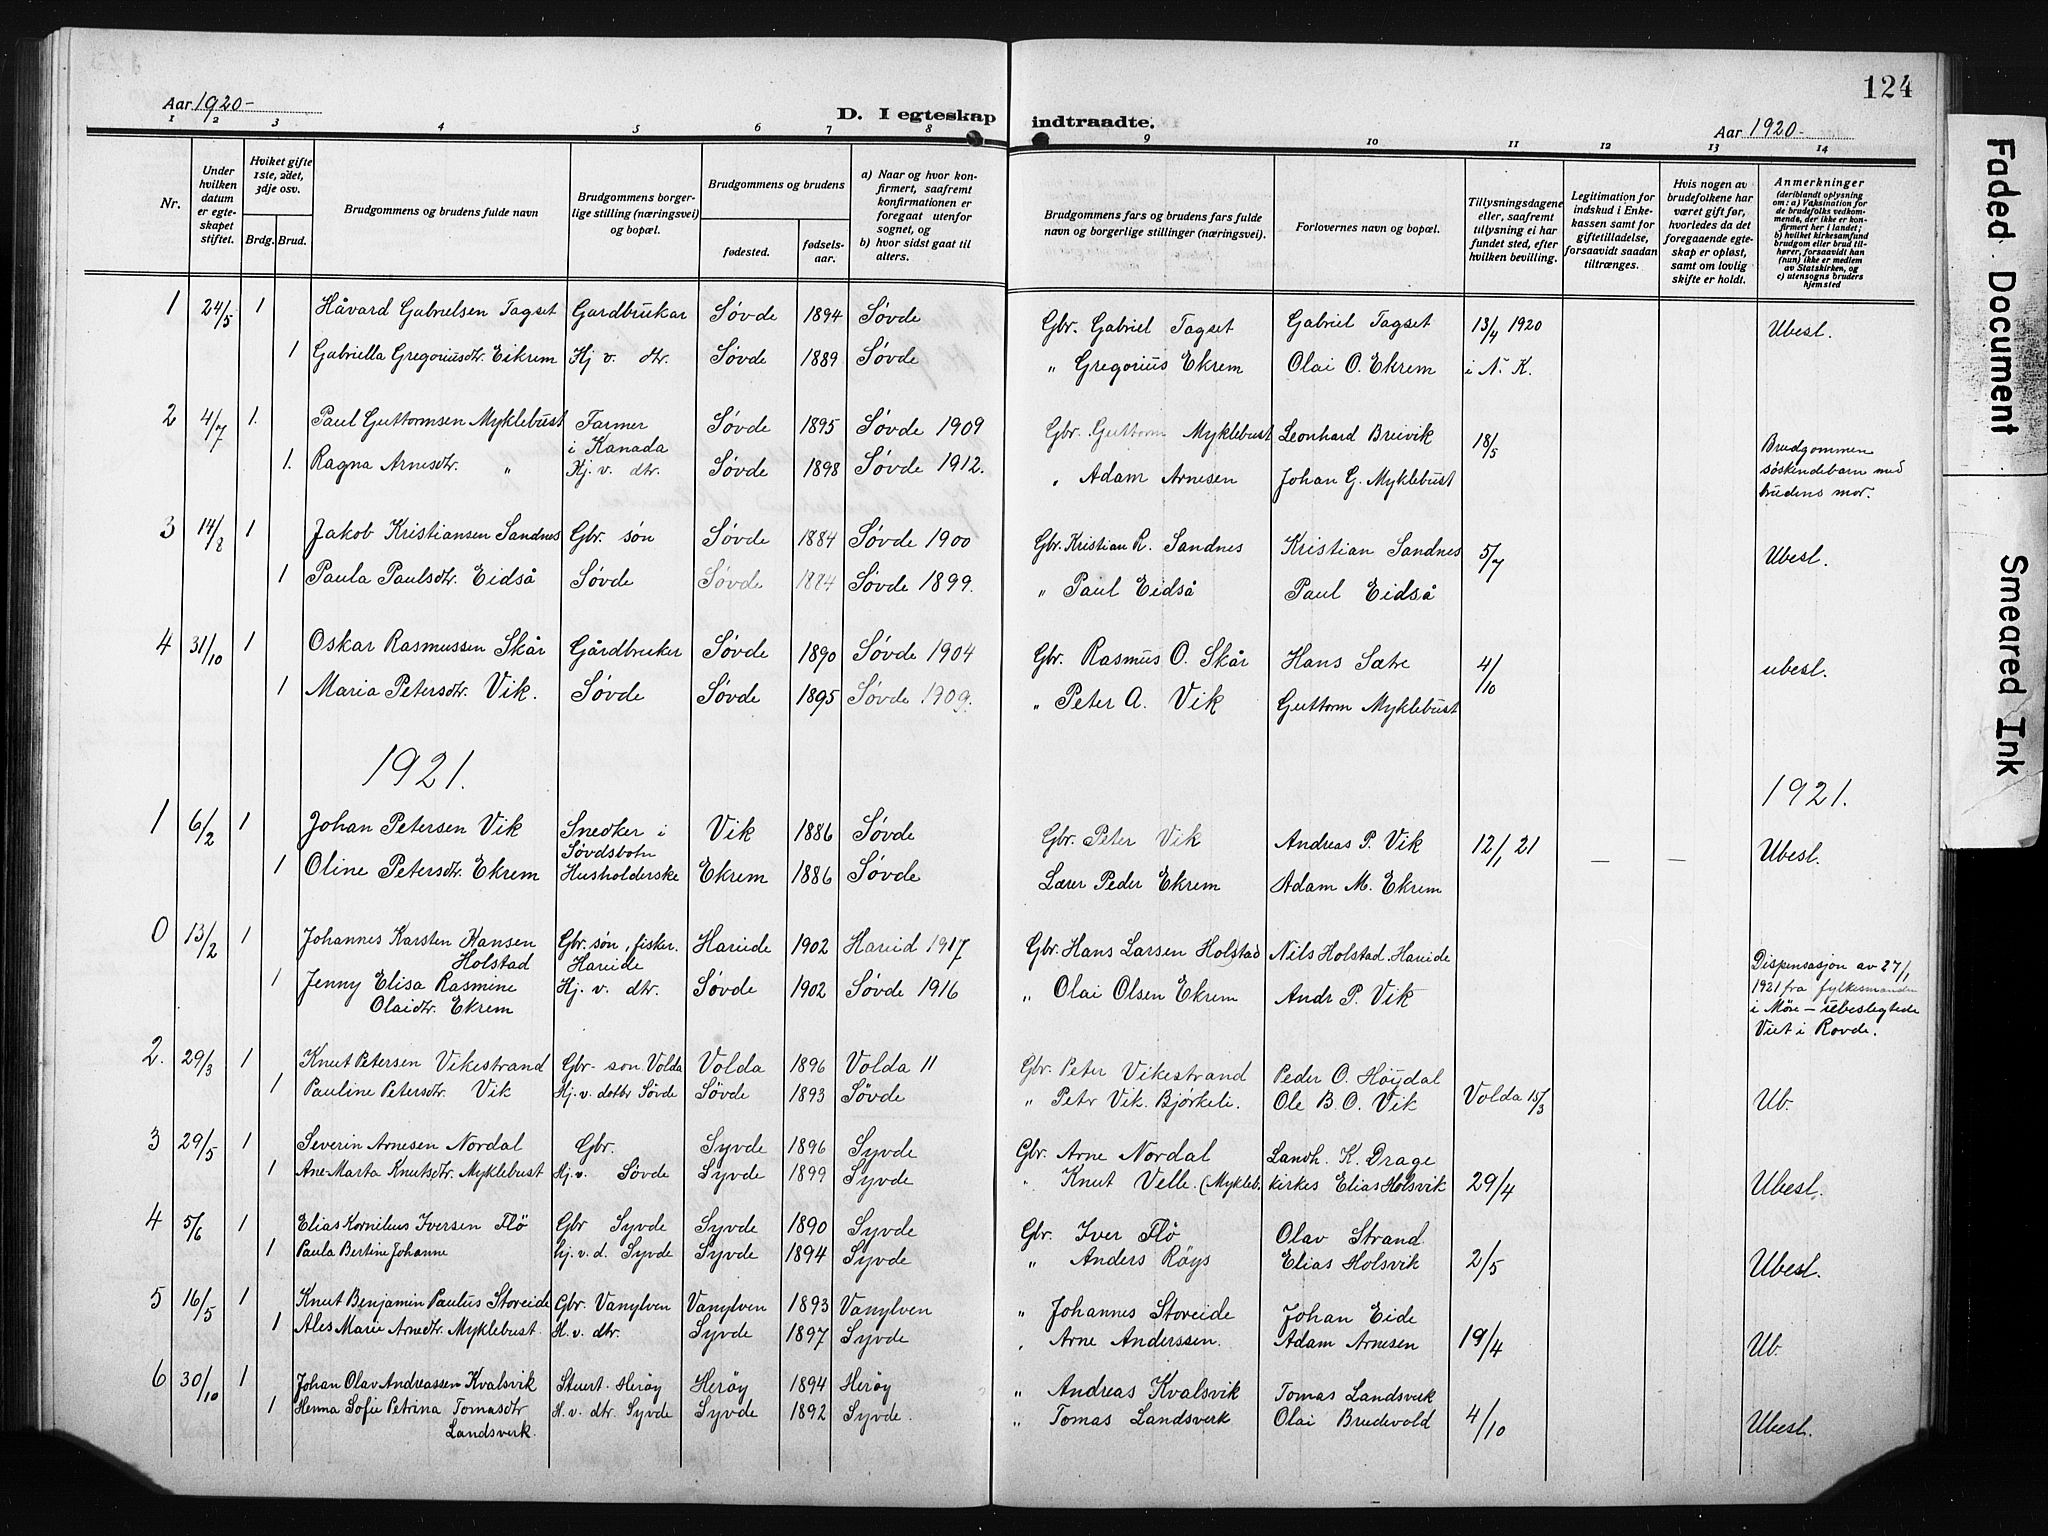 124
Aar 1920-
D. I egteskap indtraadte.
Aar 1920-
1 2 3 4 5 6 7 8 9 10 11 12 13 14
Nr.
Under hvilken datum er egteskapet stiftet.
Hvilket gifte 1ste, 2det, 3dje osv.
Brdg. Brud.
Brudgommens og brudens fulde navn
Brudgommens borgerlige stilling (næringsvei) og bopæl.
Brudgommens og brudens
fødested. fødselsaar.
a) Naar og hvor konfirmert, saafremt konfirmationen er foregaat utenfor sognet, og
b) hvor sidst gaat til alters.
Brudgommens fars og brudens fars fulde navn og borgerlige stillinger (næringsvei).
Forlovernes navn og bopæl.
Tillysningsdagene eller, saafremt tillysning ei har fundet sted, efter hvilken bevilling.
Legitimation for indskud i Enkekassen samt for giftetilladelse, forsaavidt saadan tiltrænges.
Hvis nogen av brudefolkene har været gift før, hvorledes da det foregaaende egteskap er opløst, samt om lovlig skifte er holdt.
Anmerkninger
(deriblandt oplysning om: a) Vaksination for de brudefolks vedkommende, der ikke er konfirmert her i landet; b) hvilket kirkesamfund brudgom eller brud tilhører, forsaavidt han (hun) ikke er medlem av Statskirken, og c) utensogns bruders hjemsted
1 24/5 1 Håvard Gabrielsen Tagset Gardbrukar Søvde 1894 Søvde Gbr. Gabriel Tagset Gabriel Tagset 13/4 1920 Ubesl.
1 Gabriella Gregoriusdtr. Eikrem Hj v. dtr. Søvde 1889 Søvde " Gregorius Ekrem Olai O. Ekrem i N. K.
2 4/7 1. Paul Guttormsen Myklebust Farmer i Kanada Søvde 1895 Søvde 1909 Gbr. Guttorm Myklebust Leonhard Breivik 18/5 Brudgommen søskendebarn med brudens mor.
1. Ragna Arnesdtr. " Hj. v. dtr. Søvde 1898 Søvde 1912. " Adam Arnesen Johan G. Myklebust
3 14/8 1 Jakob Kristiansen Sandnes Gbr. søn Søvde 1884 Søvde 1900 Gbr. Kristian R. Sandnes Kristian Sandnes 5/7 Ubesl.
1 Paula Paulsdtr. Eidså Søvde Søvde 1884 Søvde 1899. " Paul Eidså Paul Eidså
4 31/10 1 Oskar Rasmussen Skår Gårdbruker Søvde 1890 Søvde 1904 Gbr. Rasmus O. Skår Hans Sætre 4/10 ubesl.
1 Maria Petersdtr. Vik. Søvde Søvde 1895 Søvde 1909. " Peter A. Vik Guttorm Myklebust
1921. 1921.
1 6/2 1 Johan Petersen Vik Snedker i Søvdsbotn Vik 1886 Søvde Gbr. Peter Vik Andreas P. Vik 12/1 21 — — Ubesl.
1 Oline Petersdtr. Ekrem Husholderske Ekrem 1886 Søvde Lærer Peder Ekrem Adam M. Ekrem
0 13/2 1 Johannes Karsten Hansen Holstad Gbr. søn, fisker. Hareide Hareide 1902 Hareid 1917 Gbr. Hans Larsen Holstad Nils Holstad, Hareide
1 Jenny Elisa Rasmine Olaidtr. Ekrem Hj. v. dtr. Søvde 1902 Søvde 1916 " Olai Olsen Ekrem Andr P. Vik Dispensasjon av 27/1 1921 fra fylkesmanden i Møre — ubeslegtede Viet i Rovde.
2. 29/3 1 Knut Petersen Vikestrand Gbr. søn Volda Volda 1896 Volda 11 Gbr. Peter Vikestrand Peder O. Høydal
1 Pauline Petersdtr. Vik Hj. v. dottr Søvde Søvde 1893 Søvde " Peter Vik. Bjørkeli. Ole B. O. Vik Volda 15/3 Ub.
3 29/5 1 Severin Arnesen Nordal Gbr. Syvde 1896 Syvde Gbr. Arne Nordal Landh. K. Drage
1 Ane Marta Knutsdtr. Myklebust Hj. v. Søvde Syvde 1899 Syvde " Knut Velle. (Mykleb. kirkes Elias Holsvik 29/4 Ubesl.
4 5/6 1 Elias Kornelius Iversen Flö Gbr Syvde Syvde 1890 Syvde Gbr. Iver Flö Olav Strand
1 Paula Bertine Johanne hj. v. d. Syvde Syvde 1894 Syvde " Anders Röys Elias Holsvik 2/5 Ubesl.
5 16/5 1 Knut Benjamin Paulus Storeide Gbr. Vanylven Vanylven 1893 Vanylven " Johannes Storeide Johan Eide
1 Ales Marie Arnedtr. Myklebust. H. v. dtr. Syvde 1897 Syvde " Arne Anderssen. Adam Arnesen 19/4 Ub.
6 30/10 1 Johan Olav Andreassen Kvalsvik Stuert. Herøy Herøy 1894 Herøy " Andreas Kvalsvik Tomas Landsverk
1 Henna Sofie Petrina Tomasdtr Landsverk. H. v. dtr Syvde Syvde 1892 Syvde. " Tomas Landsverk Olai Brudevold 4/10 Ubesl.
Faded Document
Smeared Ink